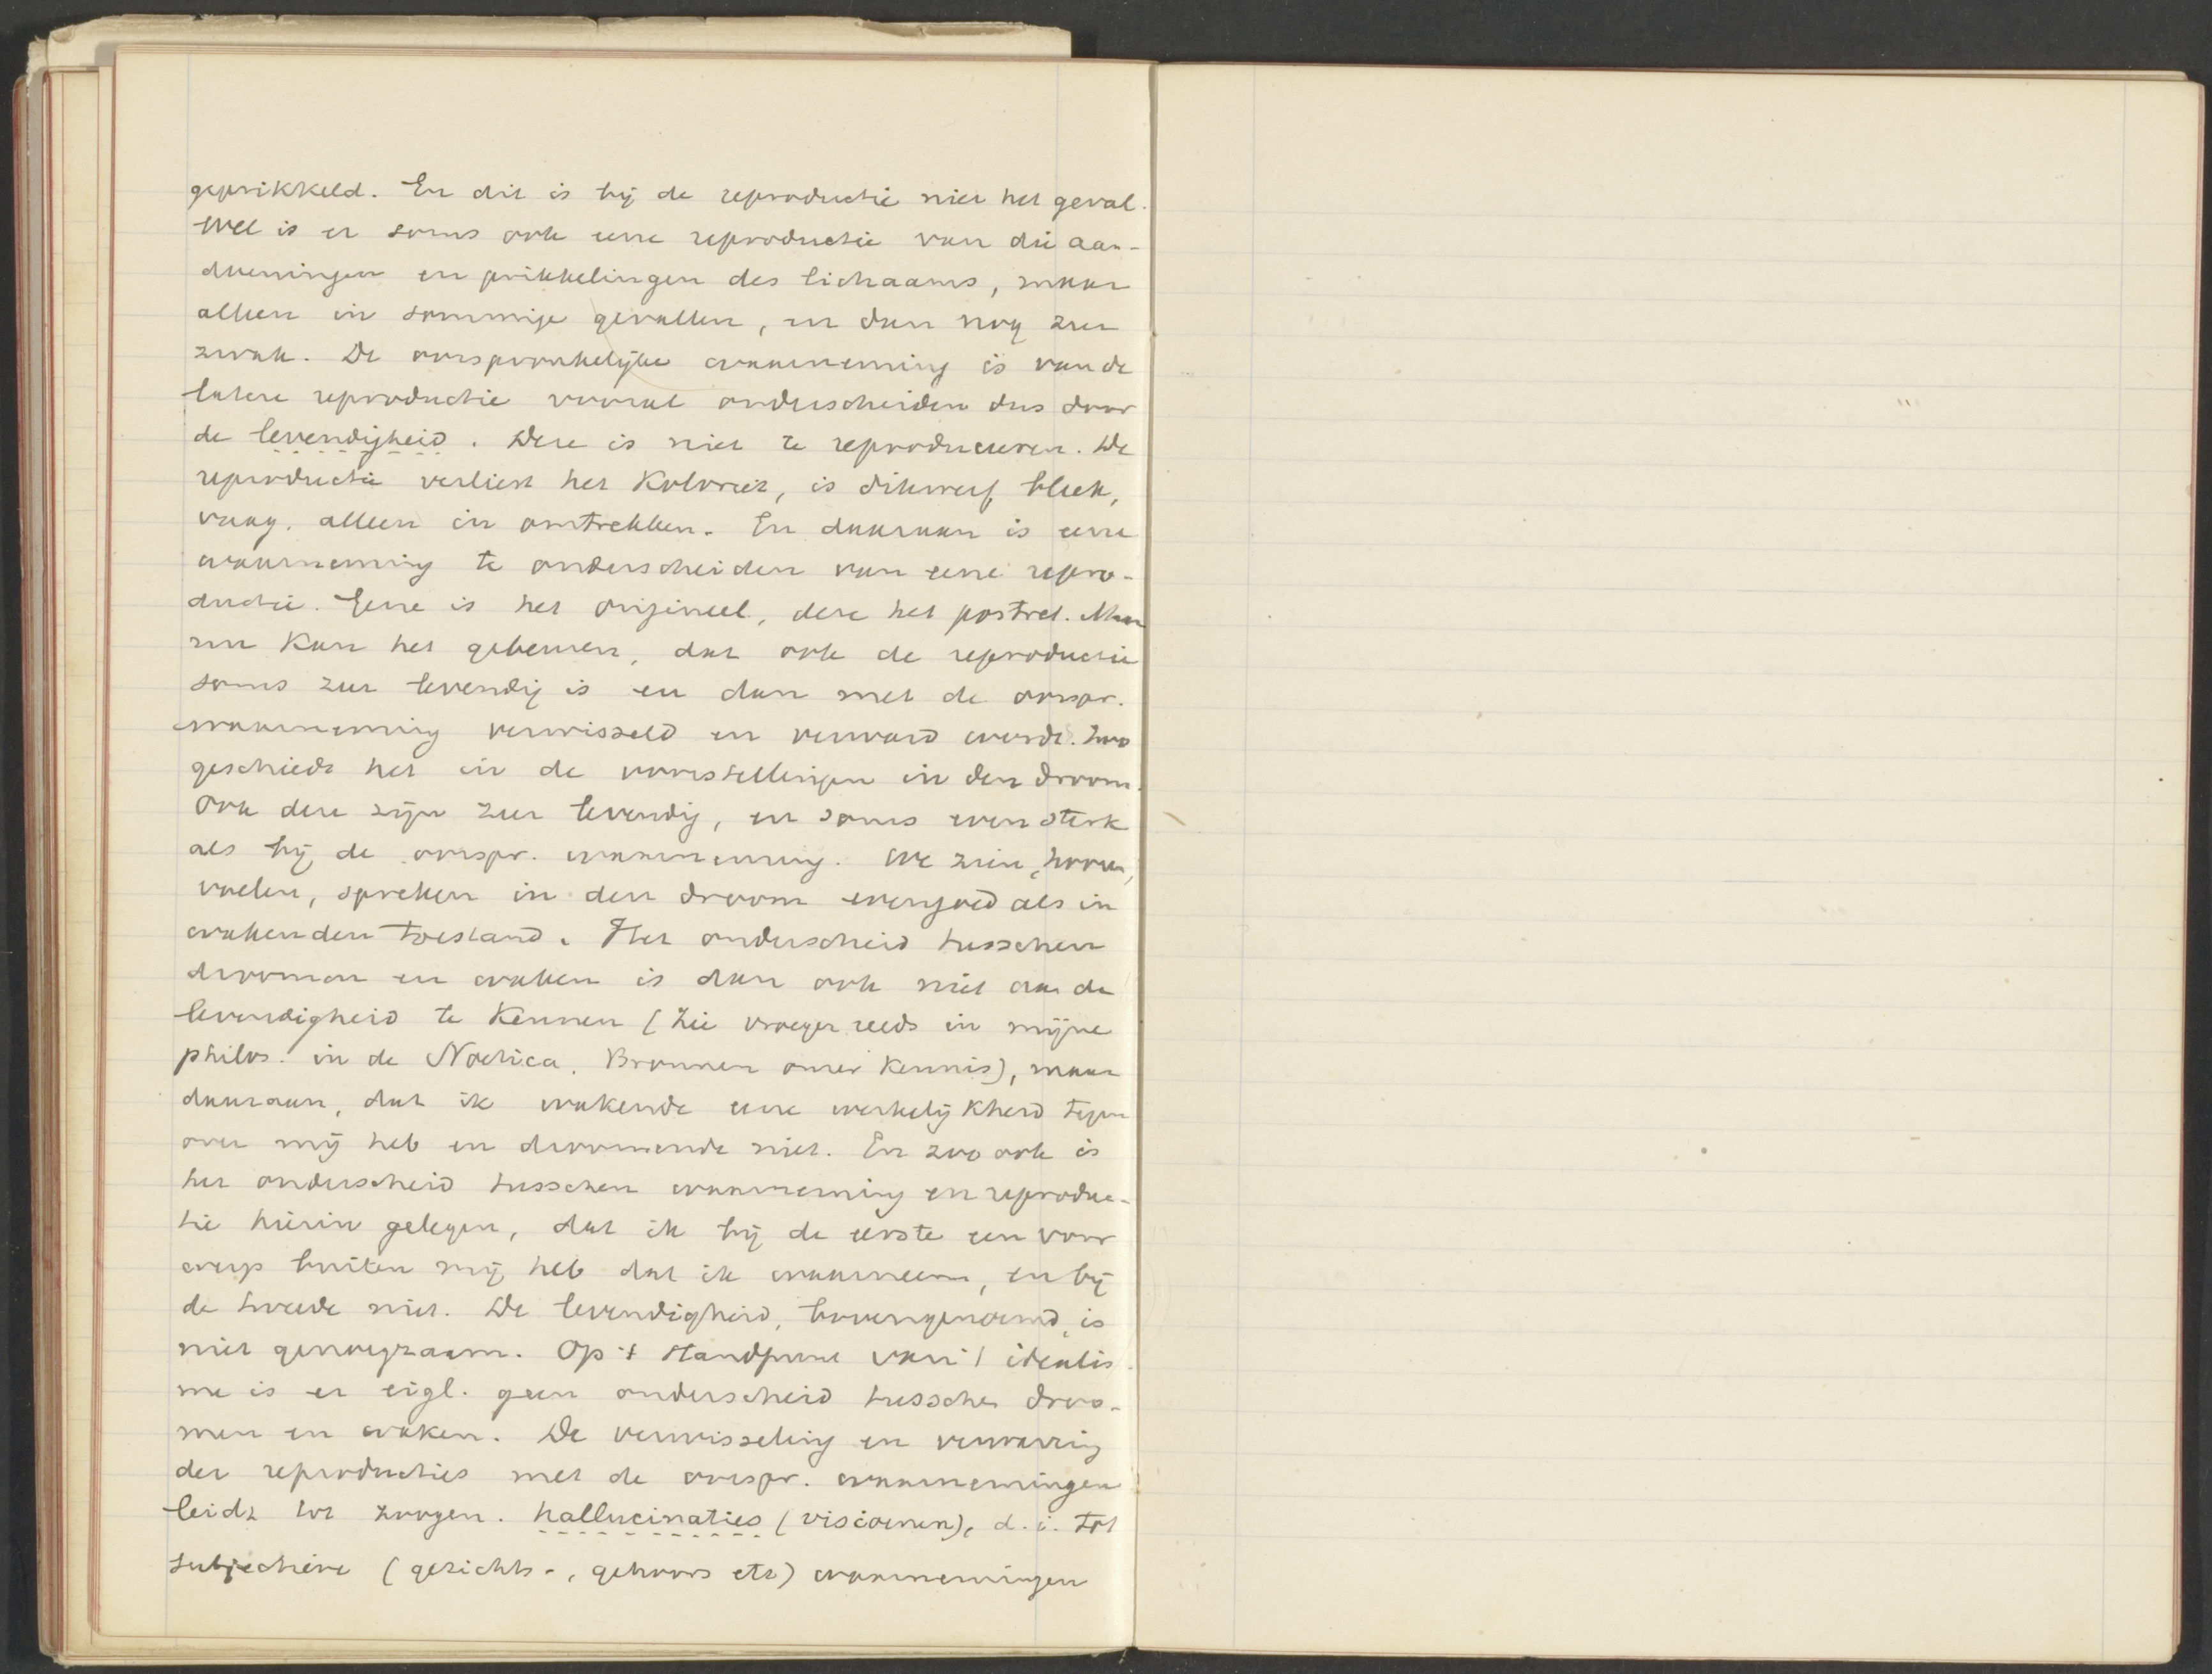 geprikkeld. En dit is bij de reproductie niet het geval.
Wel is er soms ook eene reproductie van die aan-
doeningen en prikkelingen des lichaams, maar
alleen in sommige gevallen, en dan nog zeer
zwak. De oorspronkelijke waarneming is van de
latere reproductie vooral onderscheiden dus door
de levendigheid. Deze is niet te reproduceeren. De
reproductie verliest het Koloriet, is dikwerf bleek,
vaag, alleen in omtrekken. En daaraan is eene
waarneming te onderscheiden van eene repro-
ductie. Gene is het origineel, deze het portret. Maar
nu Kan het gebeuren, dat ook de reproductie
soms zeer levendig is en dan met de oorspr.
waarneming verwisseld en verward wordt. Zoo
geschiedt het in de voorstellingen in den droom.
Ook deze zijn zeer levendig, en soms even sterk
als bij de oorspr. waarneming. We zien, hooren,
voelen, spreken in den droom evengoed als in
wakenden toestand. Het onderscheid tusschen
droomen en waken is dan ook niet aan de
levendigheid te Kennen (zie vroeger reeds in mijne
philos. in de Noetica. Bronnen onzer Kennis), maar
daaraan, dat ik wakende eene werkelijkheid tegen
over mij heb en droomende niet. En zoo ook is
het onderscheid tusschen waarneming en reproduc-
tie hierin gelegen, dat ik bij de eerste een voor
werp buiten mij heb dat ik waarneem, en bij
de tweede niet. De levendigheid, bovengenoemd, is
niet genoegzaam. Op 't standpunt van 't idealis
me is er eigl. geen onderscheid tusschen droo-
men en waken. De verwisseling en verwarring
der reproducties met de oorspr. waarnemingen
leidt tot zoogen. hallucinaties (visioenen), d.i. tot
subjectieve (gezichts-, gehoors etc) waarnemingen